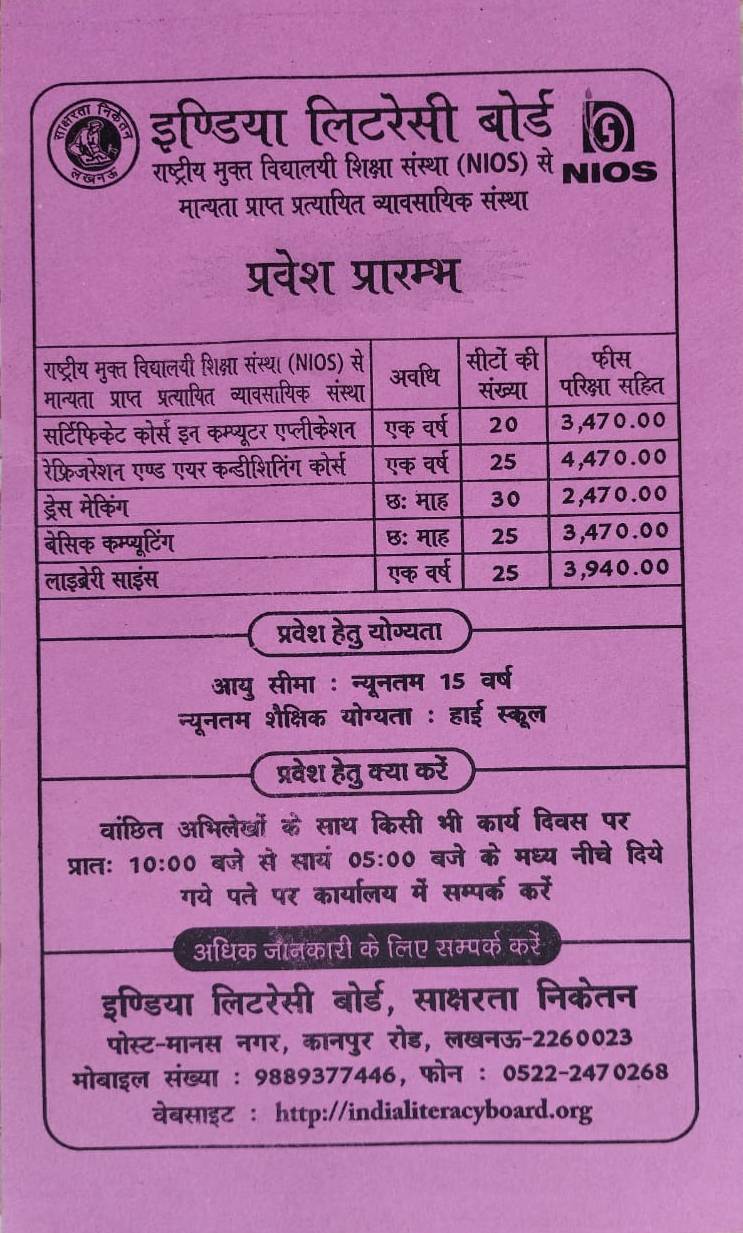 साक्षरता निकेतन
लखनऊ
इण्डिया लिटरेसी बोर्ड
राष्ट्रीय मुक्त विद्यालयी शिक्षा संस्था (NIOS) से
NIOS
मान्यता प्राप्त प्रत्यायित व्यावसायिक संस्था
प्रवेश प्रारम्भ
राष्ट्रीय मुक्त विद्यालयी शिक्षा संस्था (NIOS) से
मान्यता प्राप्त प्रत्यायित व्यावसायिक संस्था
अवधि
सीटों की
संख्या
फीस
परिक्षा सहित
सर्टिफिकेट कोर्स इन कम्प्यूटर एप्लीकेशन एक वर्ष 20 3,470.00
रेफ्रिजरेशन एण्ड एयर कन्डीशिनिंग कोर्स एक वर्ष 25 4,470.00
ड्रेस मेकिंग छः माह 30 2,470.00
बेसिक कम्प्यूटिंग छः माह 25 3,470.00
लाइब्रेरी साइंस एक वर्ष 25 3,940.00
प्रवेश हेतु योग्यता
आयु सीमा : न्यूनतम 15 वर्ष
न्यूनतम शैक्षिक योग्यता : हाई स्कूल
प्रवेश हेतु क्या करें
वांछित अभिलेखों के साथ किसी भी कार्य दिवस पर
प्रातः 10:00 बजे से सायं 05:00 बजे के मध्य नीचे दिये
गये पते पर कार्यालय में सम्पर्क करें
अधिक जानकारी के लिए सम्पर्क करें
इण्डिया लिटरेसी बोर्ड, साक्षरता निकेतन
पोस्ट-मानस नगर, कानपुर रोड, लखनऊ-2260023
मोबाइल संख्या : 9889377446, फोन : 0522-2470268
वेबसाइट : http://indialiteracyboard.org